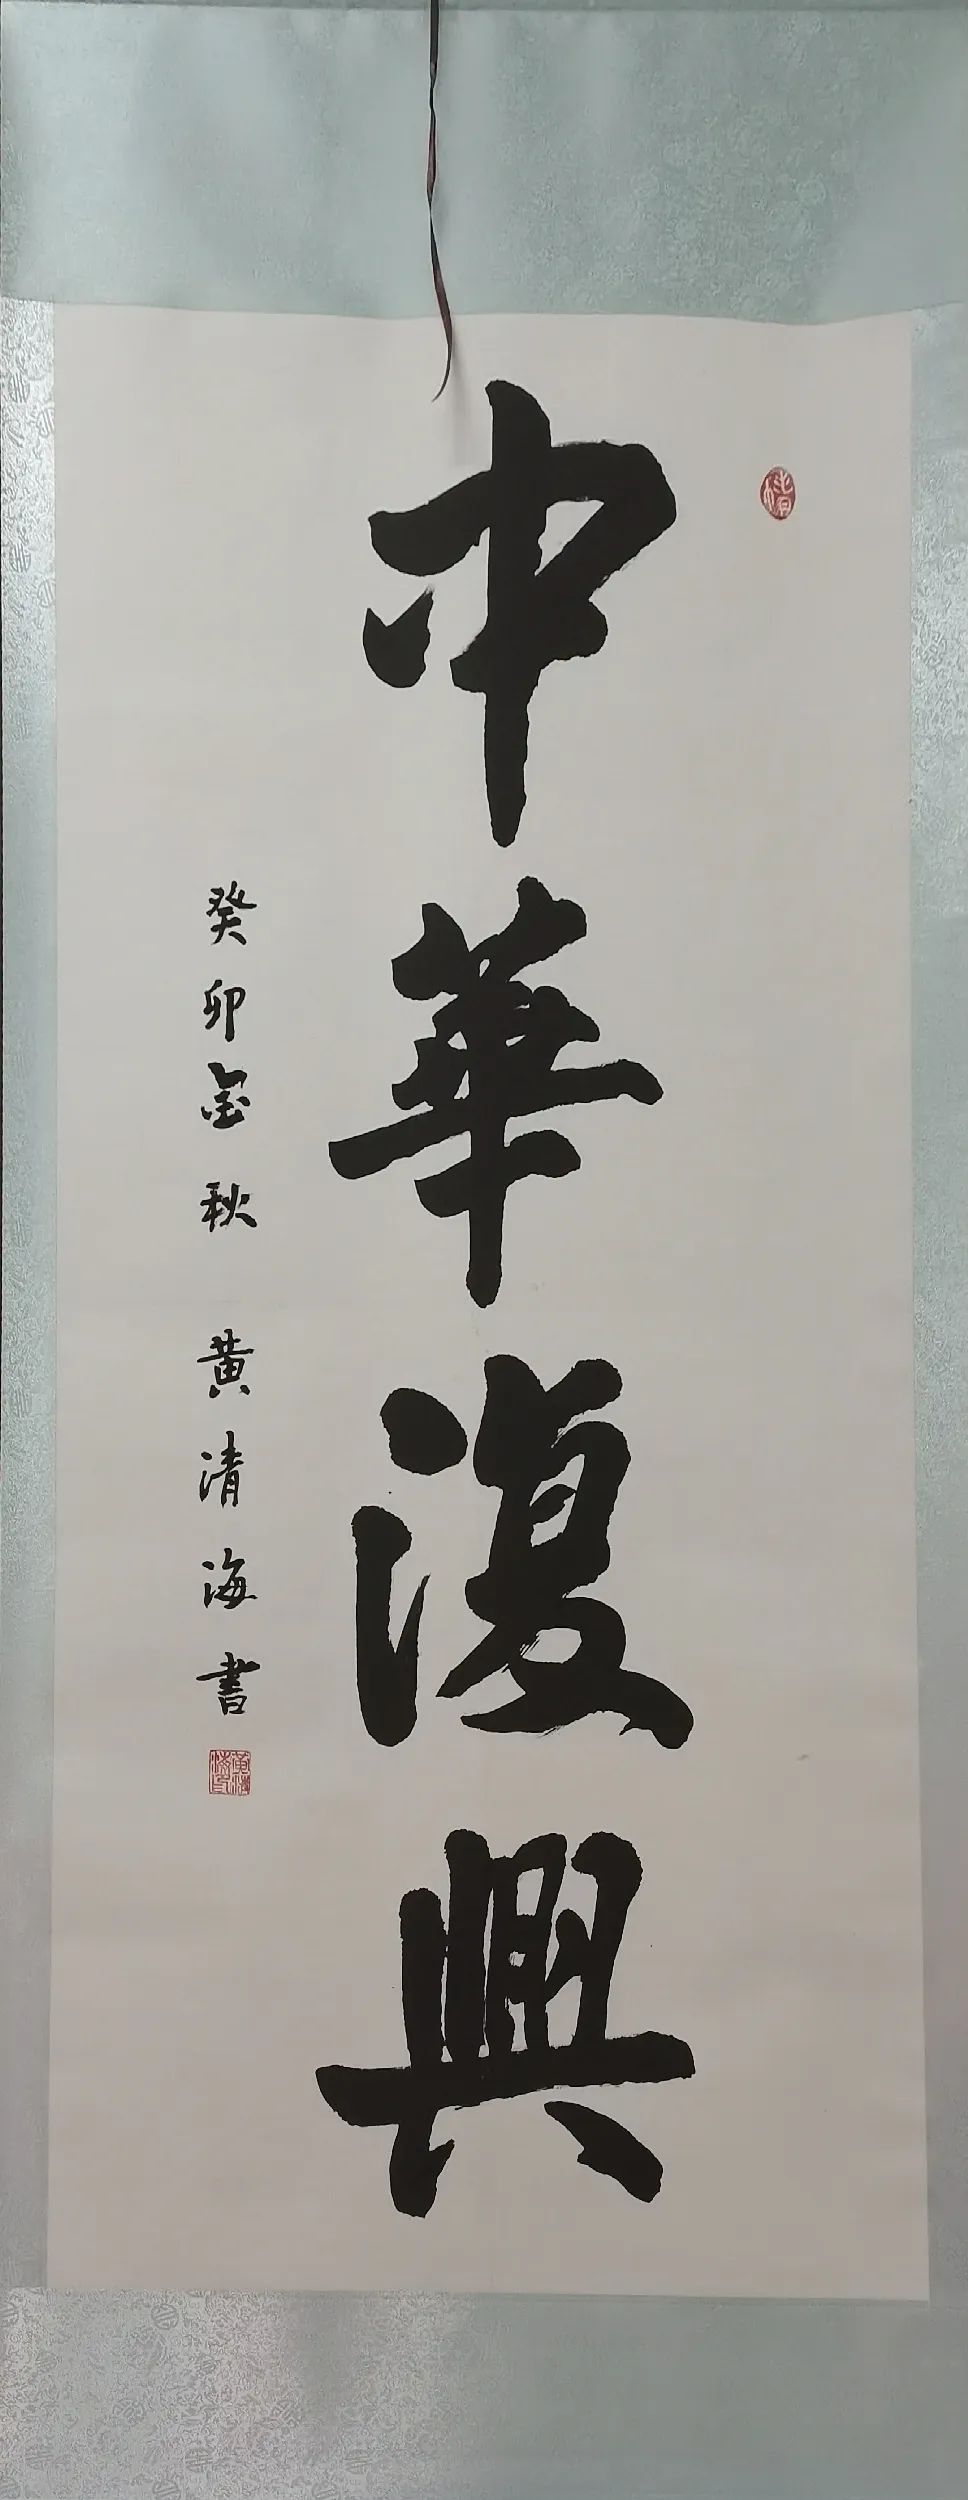 中華復興
癸卯金秋 黄清海書